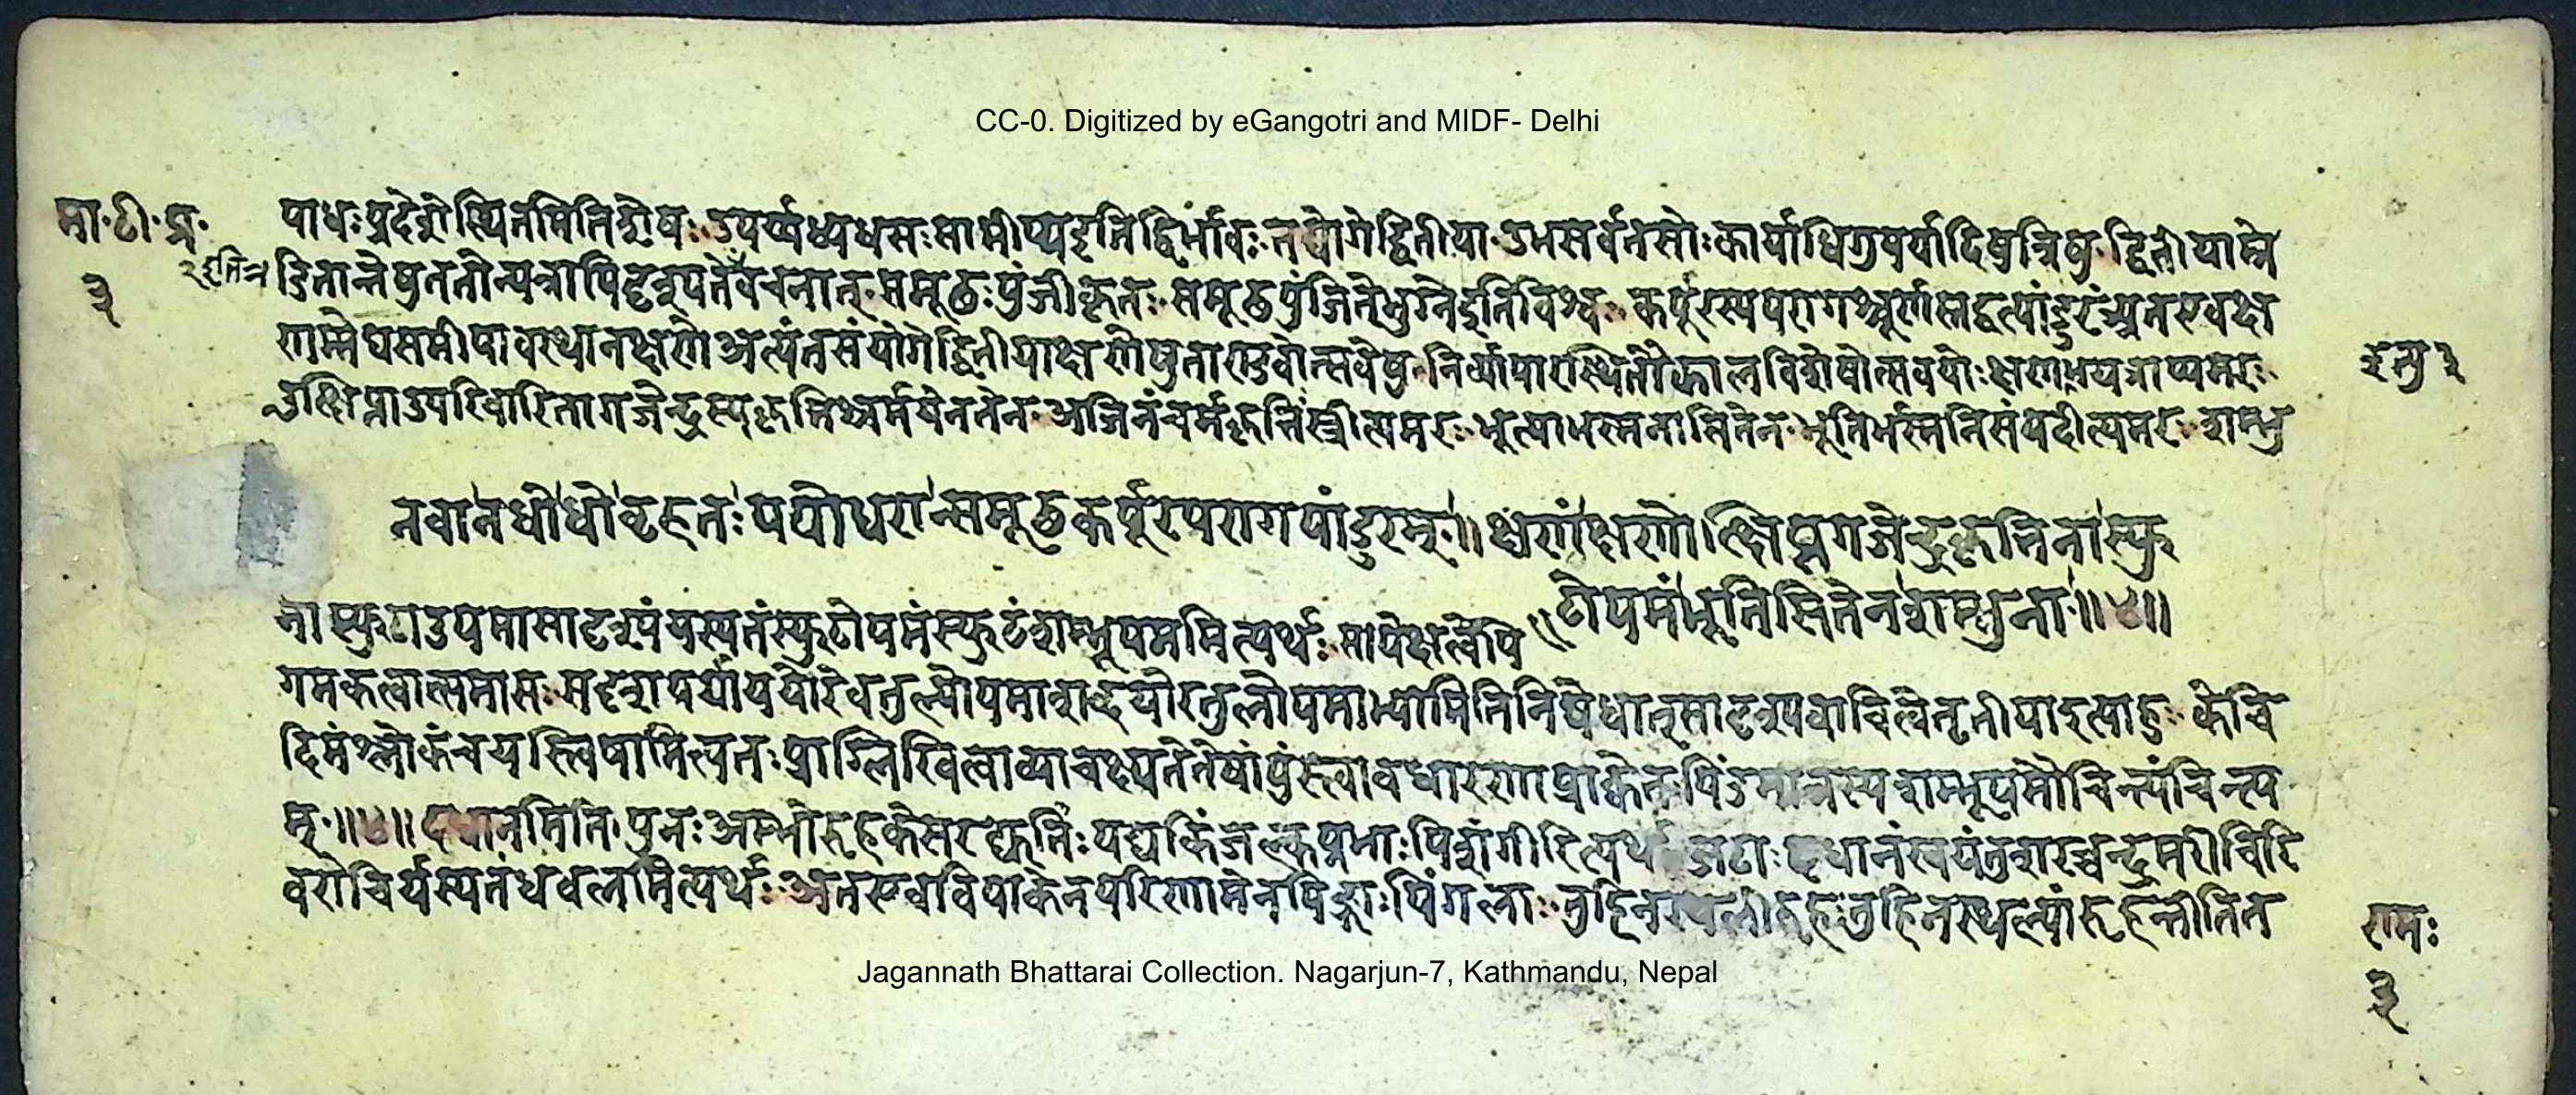 CC-0. Digitized by eGangotri and MIDF- Delhi
मा॰ टी॰ प्र॰ पाधः प्रदेशे स्थितमिति शेषः उपर्य्यध्यधसः सामीप्य इति द्विर्भावः तद्योगे द्वितीया उभसर्वतसोः कार्या धिगुपर्यादिषु त्रिषु द्वितीयाम्रे
३ डितान्तेषु ततोन्यत्रापि दृश्यते वचनात् समूठः पुंजीकृतः समूठ पुंजिते भुग्ने इति विश्वः कर्पूरस्य परागश्चूर्णं तद्वत्पांडुरं अत एव क्ष
णमेघसमीपावस्थानक्षणे अत्यंतसंयोगे द्वितीया क्षणेषु ताण्डवोत्सवेषु निर्व्यापारस्थितौ कालविशेषोत्सवयोः क्षण इत्यमरः
उत्क्षिप्ता उपरिधारिता गजेन्द्रस्य कृत्तिश्चर्म येन तेन अजिनं चर्म कृत्तिः स्त्रीत्यमरः भूत्या भस्मना सितेन भूतिर्भस्मनि संपदीत्यमरः शम्भु
नवानधोधो बृहतः पयोधरान्समूठकर्पूरपरागपांडुरम् ॥ क्षणं क्षणोत्क्षिप्तगजेन्द्रकृत्तिना स्फु
टोपमं भूतिसितेन शम्भुना ॥४॥
ना स्फुटा उपमा सादृश्यं यस्य तं स्फुटोपमं स्फुटं शम्भूपममित्यर्थः सापेक्षत्वेपि
गमकत्वात्समासः सदृशपर्याययोरेव तुल्योपमाशब्दयोरतुलोपमाभ्यामिति निषेधात् सादृश्यवाचित्वे तृतीयादुत्याहुः केचि
दिमं श्लोकं चयस्त्विषामित्यतः प्राग्लिखित्वा व्याचक्ष्यते तेषां पुंस्त्वावधारणाप्राक्केतः पिंडमात्रस्य शम्भूपमौचिन्त्यं चिन्त्य
म् ॥४॥ दधानमिति पुनः अम्भोरुहकेसरद्युतिः पद्मकिंजल्कप्रभाः पिशंगीरित्यर्थः जटाः दधानं स्वयं तु शरच्चन्द्रमरीचिरि
वरोचिर्यस्य तं धवलमित्यर्थः अत एव विपाकेन परिणामेन पिङ्गाः पिंगलाः तुहिनस्थलीरुहः तुहिनस्थल्यां रुहन्तीति त
रामः
३
Jagannath Bhattarai Collection. Nagarjun-7, Kathmandu, Nepal